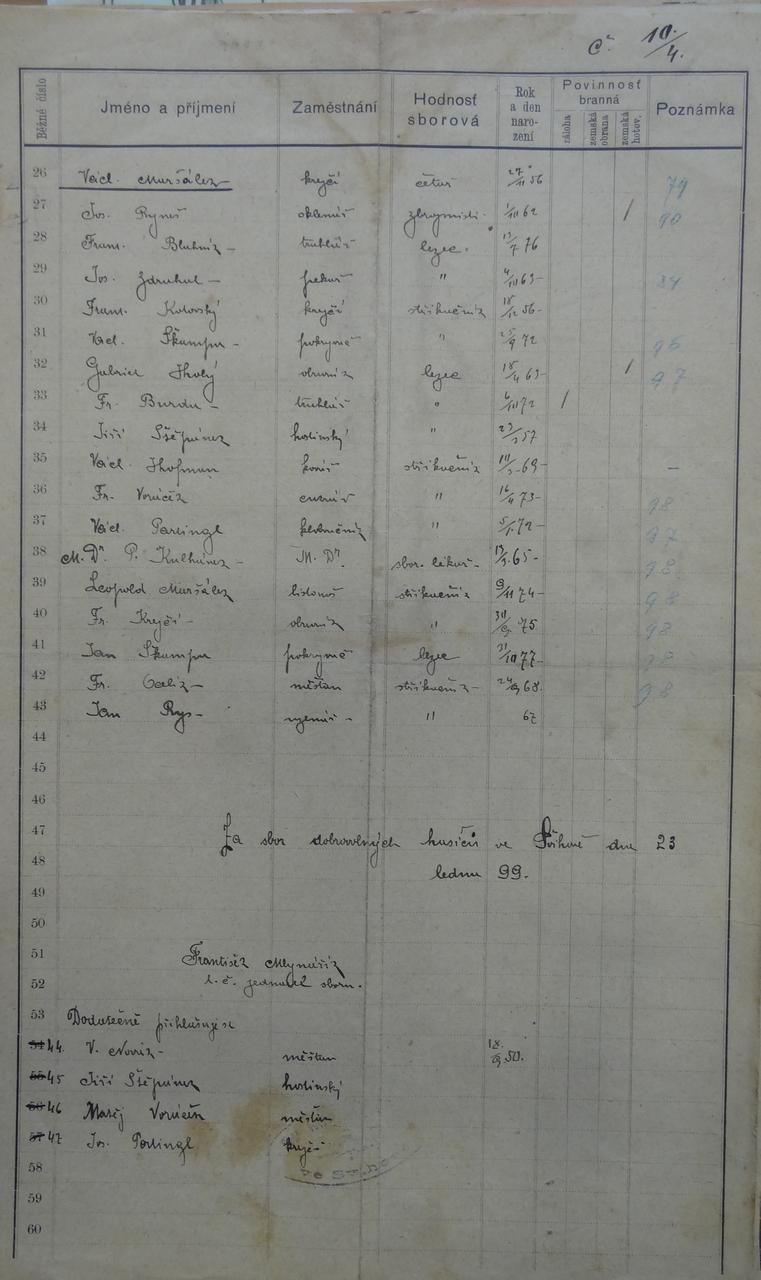 č. 10/4.
Běžné číslo Jméno a příjmení Zaměstnání Hodnosť sborová Rok a den naro- zení Povinnosť branná záloha zemská obrana zemská hotov. Poznámka
26 Václ. Maršálek krejčí četař 27/11 56 79
27 Jos. Ryneš zbrojmistr 62 / 90
28 Fran. truhlář lezec 76
29 Jos. Zdruhal pekař " 84
30 Fran. Kotovský krejčí stříkačník 18/12 56
31 Václ. Škampa pokrývač " 72 95
32 Gabriel obuvník lezec 18/4 69 / 97
33 Fr. Burda truhlář " 6/10 72 /
34 Jiří Štěpánek hodinský " 57
35 Václ. Hofman kovář stříkačník 69 -
36 Fr. Voráček " 16/4 73 98
37 Václ. Partingl kloboučník " 72 97
38 M. Dr. P. Kulhánek M. Dr. sbor. lékař 65 98
39 Leopold Maršálek listonoš stříkačník 9/11 74 98
40 Fr. Krejčí obuvník " 75 98
41 Jan Škampa pokrývač lezec 31/10 77 98
42 Fr. měšťan stříkačník 68 98
43 Jan Rys " 67
44
45
46
47 Za sbor dobrovolných hasičů ve dne 23
48 ledna 99.
49
50
51 František Mlynařík
52 t. č. jednatel sboru.
53 Dodatečně přihlašuje se
54 44. V. Novák měšťan 50.
55 45 Jiří Štěpánek hodinský
56 46 Matěj Voráček měšťan
57 47 Jos. Partingl krejčí
58
59
60